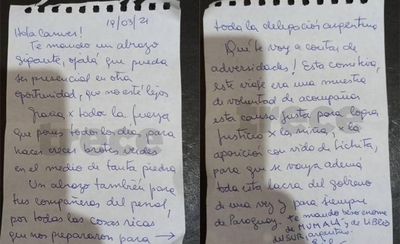 19/03/21
Hola Carmen!
Te mando un abrazo
gigante, ojalá que pueda
ser presencial en otra
oportunidad, que no esté lejos
Gracias x toda la fuerza
que pones todos los dias para
hacer crecer brotes verdes
en el medio de tanta piedra
Un abrazo también para
tus compañeras del penal,
por todas las cosas ricas
que nos prepararon para →
toda la delegación argentina
Qué te voy a contar de
adversidades! Esta comitiva,
este viaje era una muestra
de voluntad de acompañar
esta causa justa para lograr
justicia x las niñas, x la
aparición con vida de Lichita,
para que se vaya además
toda esta lacra del gobierno
de una vez y para siempre
de Paraguay. te mando beso enorme
de MUMALÁ y de LIBRES
del SUR argentina